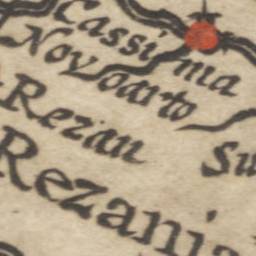 Cassi ma
Novoarto
Rezan
Su
Rezani